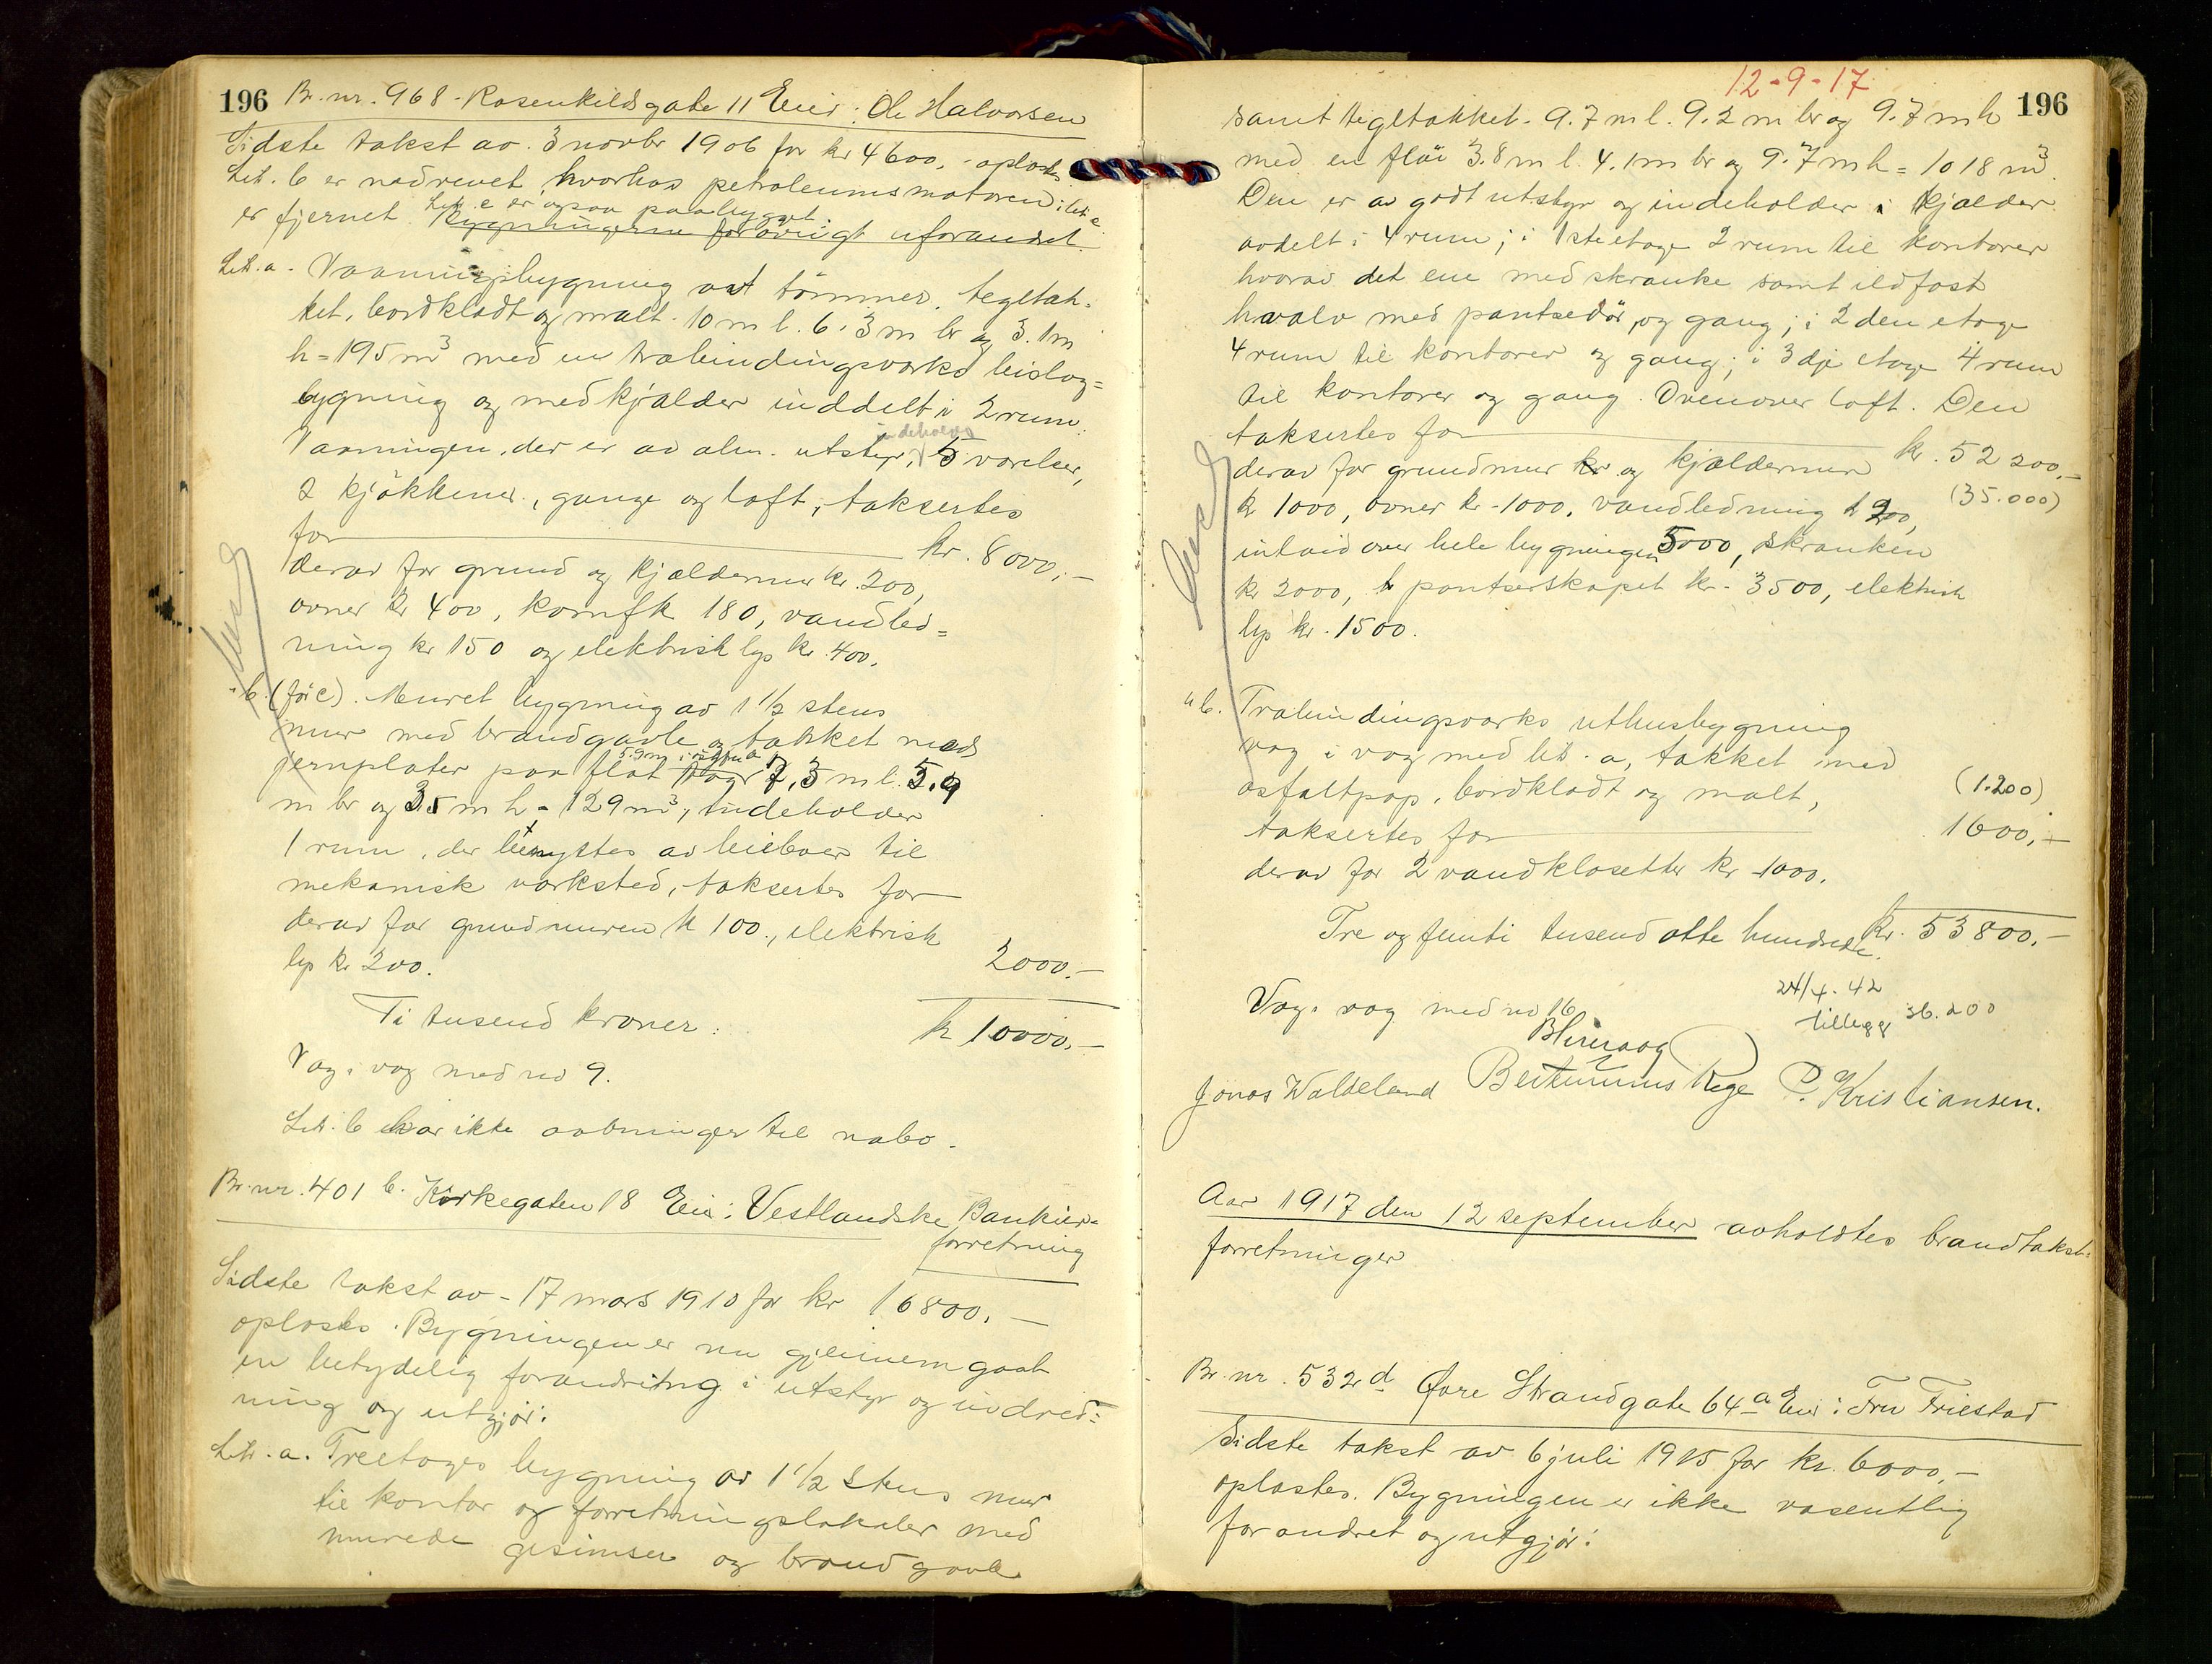 196 Br. nr. 968 - Rosenkildsgate 11 Eier: Ole Halvorsen
Sidste takst av 3 novbr 1906 for kr 4600,- opløstes
Lit. b er nedrevet, hvorhos petroleumsmotoren i lit c
er fjernet. Lit. c er ogsaa paabygget.
Bygningerne forøvrigt uforandret.
Lit. a. Vaaningsbygning av tømmer, tegltæk-
ket, bordklædt og malt. 10 m l. 6.3 m br og 3.1 m
h = 195 m³ med en træbindingsverks bislag=
bygning og med kjælder inddelt i 2 rum.
indeholder
Vaaningen, der er av alm. utstyr, 5 værelser,
2 kjøkkener, gange og loft, taksertes
for kr. 8000,-
derav for grund og kjældermur kr. 200,
ovner kr 400, komf k 180, vandled=
ning kr 150 og elektrisk lys kr. 400.
" b. (før c). Muret bygning av 1 1/2 stens
mur med brandgavle og tækket med
jernplater paa flat 7.3 m l. 5.9
m br og 3.5 m h = 129 m³, indeholder
1 rum, der benyttes av leieboer til
mekanisk verksted, taksertes for
derav for grundmuren k 100., elektrisk
lys kr 200. 2000.-
Ti tusend kroner. kr 10000,-
Væg i væg med no 9.
Lit. b har ikke aabninger til nabo.
Br. nr. 401 b. Kirkegaten 18 Eier: Vestlandske Bankier-
forretning
Sidste takst av - 17 mars 1910 for kr 16800,-
opløstes. Bygningen er nu gjennemgaat
en betydelig forandring i utstyr og indred=
ning og utgjør:
Lit. a. Treetages bygning av 1 1/2 stens mur
til kontor og forretningslokaler med
murede gesimser og brandgavle
12-9-17
196
samt tegltækket. 9.7 m l. 9.2 m br og 9.7 m h
med en fløi 3.8 m l. 4.1 m br og 9.7 m h = 1018 m³.
Den er av godt utstyr og indeholder i kjælder
avdelt i 4 rum; i 1ste etage 2 rum til kontorer
hvorav det ene med skranke samt ildfast
hvælv med pantserdør, og gang; i 2den etage
4 rum til kontorer og gang; i 3dje etage 4 rum
til kontorer og gang. Ovenover loft. Den
taksertes for kr. 52 200,-
derav for grundmur kr og kjældermur
(35.000)
kr 1000, ovner kr - 1000, vandledning k 200,
inlaid over hele bygningen 5000, skranken
kr 2000, pantserskapet kr - 3500, elektrisk
lys kr. 1500.
" b. Træbindingsverks uthusbygning
væg i væg med lit. a, tækket med
asfaltpap, bordklædt og malt, (1.200)
taksertes for 1600,-
derav for 2 vandklosetter kr 1000.
Tre og femti tusend otte hundrede. Kr. 53800.-
24/4. 42
tillegg 36.200
Væg i væg med no 16
Jonas Waldeland Bertinius Rege P. Kristiansen.
Aar 1917 den 12 september avholdtes brandtakst-
forretninger
Br. nr. 532 d Øvre Strandgate 64 a Eier: Fru Friestad
Sidste takst av 6 juli 1915 for kr. 6000,-
opløstes. Bygningen er ikke væsentlig
forandret og utgjør: